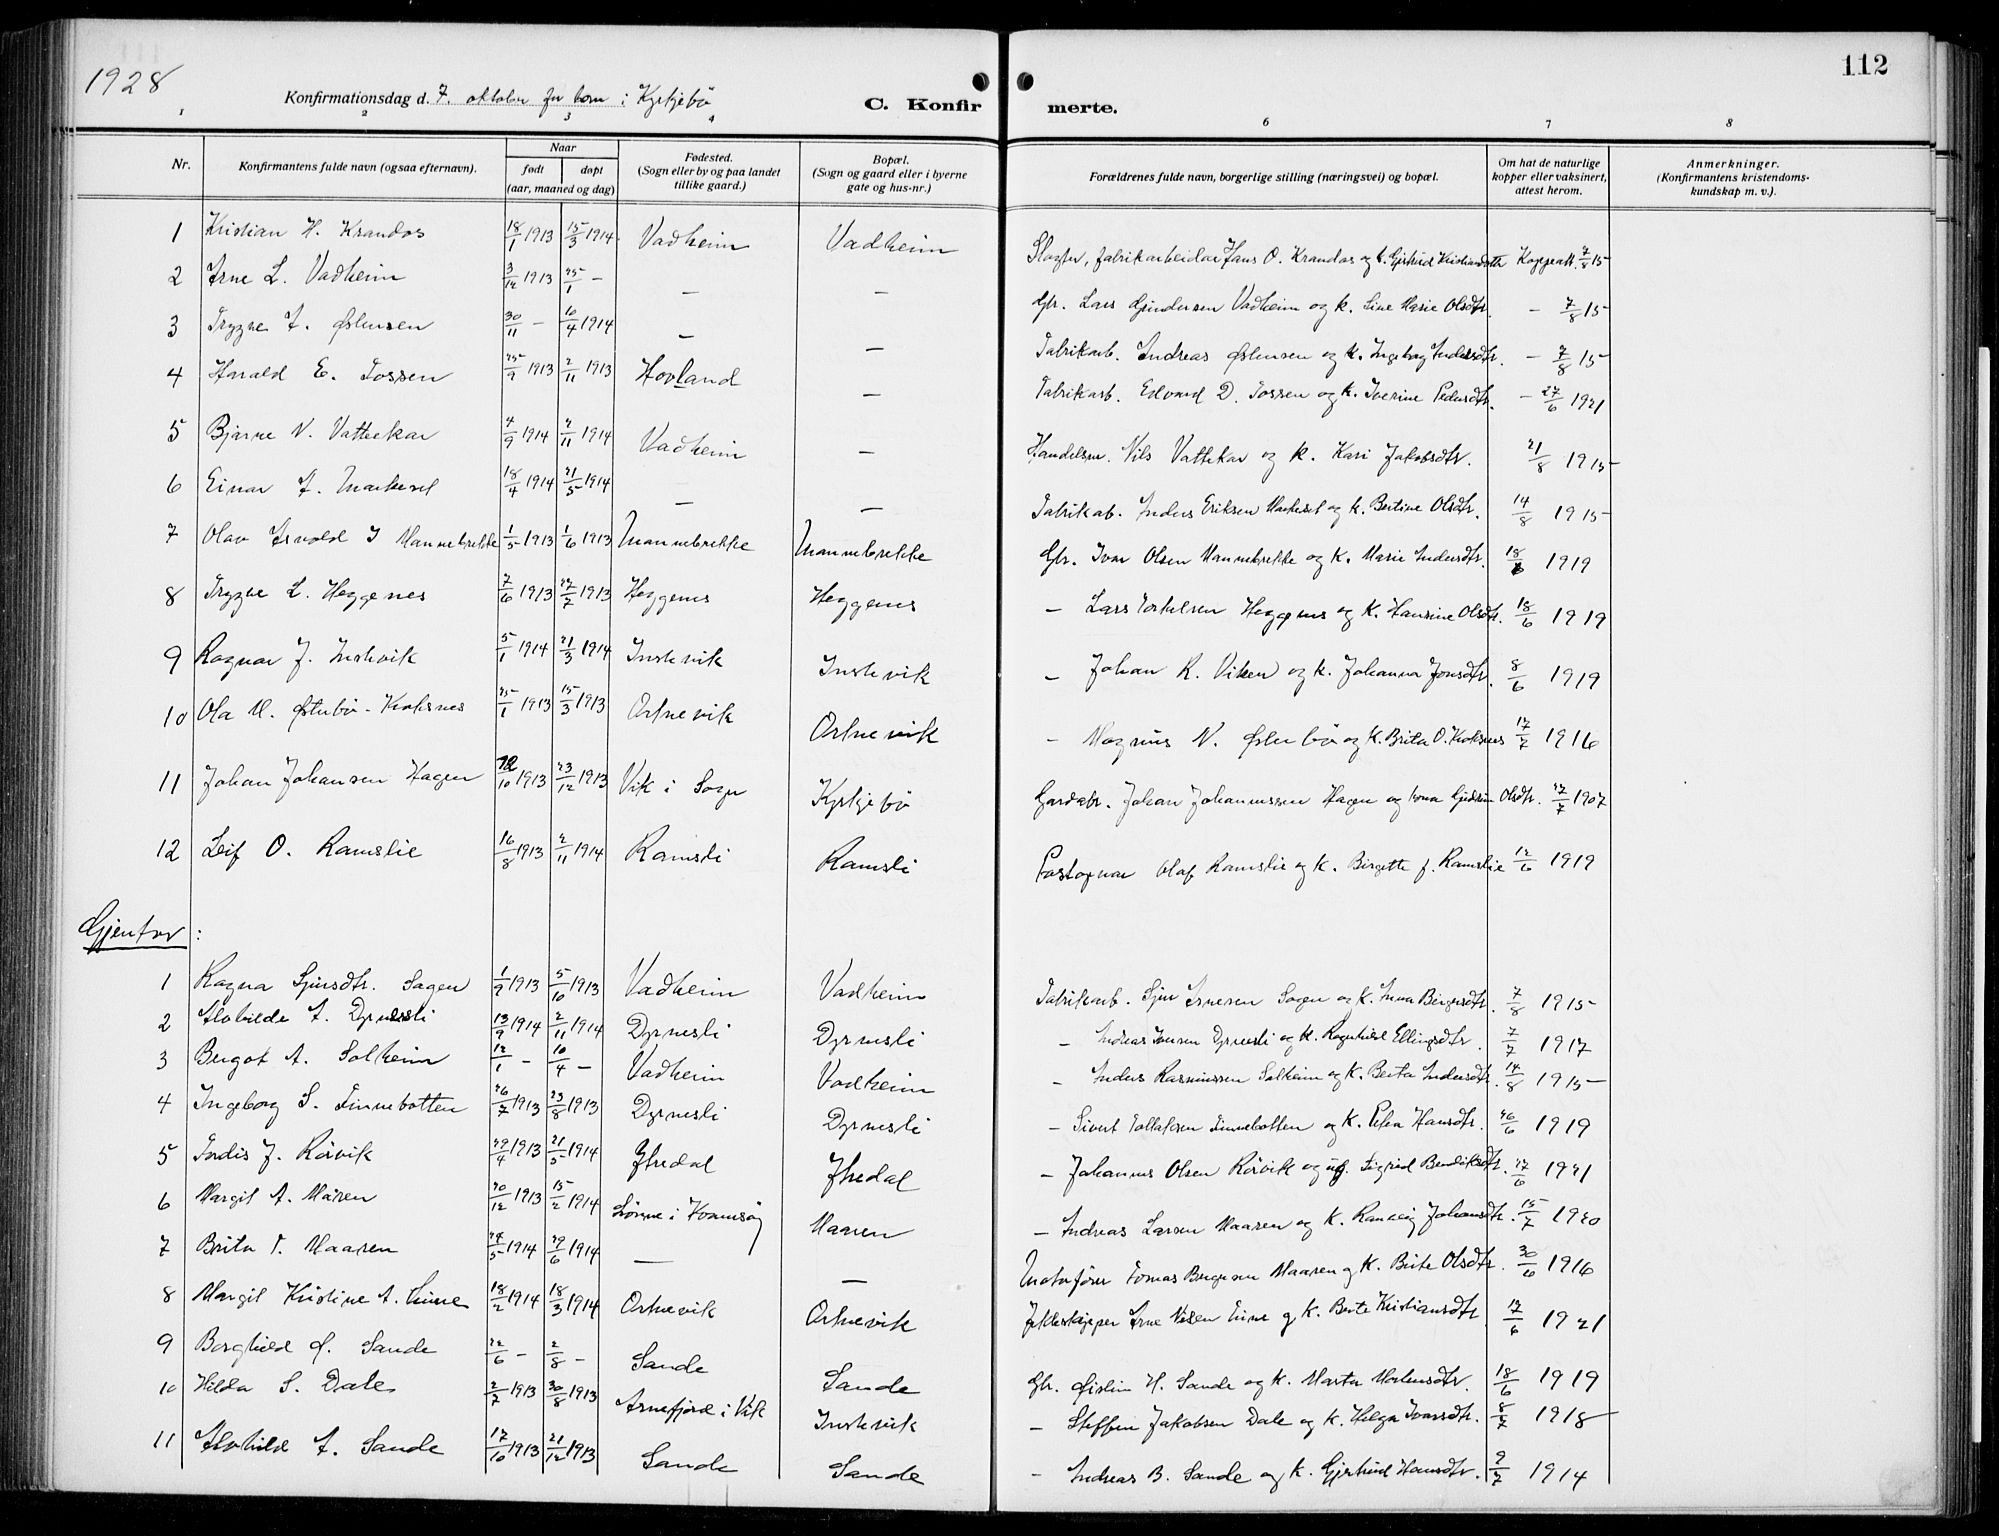 1928
112
Konfirmationsdag d. 7. oktober for born i Kyrkjebö
C. Konfirmerte.
1 2 3 4 6 7 8
Nr. Konfirmantens fulde navn (ogsaa efternavn). Naar født døpt (aar, maaned og dag) Fødested. (Sogn eller by og paa landet tillike gaard.) Bopæl. (Sogn og gaard eller i byerne gate og hus-nr.) Forældrenes fulde navn, borgerlige stilling (næringsvei) og bopæl. Om hat de naturlige kopper eller vaksinert, attest herom. Anmerkninger. (Konfirmantens kristendoms-kundskap m. v.).
1 Kristian H. Krandos 18/1 1913 15/3 1914. Vadheim Vadheim fabrikarbeidar Hans O. Krandos og k. Gjertrud Kristiansdtr Koppeatt. 7/8 15
2 Arne L. Vadheim 3/12 1913 25/1 — — — Gbr. Lars Gundersen Vadheim og k. Line Marie Olsdtr. — 7/8 15
3 Trygve A. Østensen 30/11 — 10/4 1914 — — Fabrikarb. Andreas Østensen og k. Ingeborg Andersdtr. — 7/8 15
4 Harald E. Fossen 25/9 1913 2/11 1913 Hovland — Fabrikarb. Edvard D. Fossen og k. Iverine Pedersdtr. — 27/6 1921
5 Bjarne N. Vattekar 4/9 1914 2/11 1914 Vadheim — Handelsm. Nils Vattekar og k. Kari Jakobsdtr. 21/8 1915
6 Einar A. Markeset 18/4 1914 21/5 1914 — — Fabrikab. Anders Eriksen Markeset og k. Bertine Olsdtr. 14/8 1915
7 Olav Arnold I Mannebrekke 1/5 1913 1/6 1913 Mannebrekke Mannebrekke Gbr. Ivar Olsen Mannebrekke og k. Marie Andersdtr. 18/6 1919
8 Trygve L. Heggenes 7/6 1913 27/7 1913 Heggenes Heggenes — Lars Torkelsen Heggenes og k. Hansine Olsdtr. 18/6 1919
9 Ragnar J. Instevik 5/1 1914 21/3 1914 Instevik Instevik — Johan R. Viken og k. Johanna Jonsdtr. 8/6 1919
10 Ola M. Østerbö - 25/1 1913 15/3 1913 Ortnevik Ortnevik — Magnus N. Østerbö og k. Brita O. 17/7 1916
11 Johan Johansen Hagen 12/10 1913 23/12 1913 Vik i Sogn Kyrkjebö Gardsbr. Johan Johannessen Hagen og kona Olsdtr. 27/7 1907
12 Leif O. Ramslie 16/8 1913 2/11 1914 Ramsli Ramsli Postopnar Olaf Ramslie og k. Birgitte J. Ramslie 12/6 1919
Gjentor:
1 Ragna Sjursdtr. Sagen 1/9 1913 5/10 1913 Vadheim Vadheim Fabrikarb. Sjur Arnesen Sagen og k. Anna Birgersdtr. 7/8 1915
2 Alvhilde A. Dyrnesli 13/9 1914 2/11 1914 Dyrnesli Dyrnesli — Andreas Dyrnesli og k. Ragnhild Ellingsdtr. 7/7 1917
3 Bergot A. Solheim 12/1 — 10/4 — Vadheim Vadheim — Anders Rasmussen Solheim og k. Berta Andersdtr. 14/8 1915
4 Ingeborg S. Finnebotten 26/7 1913 23/8 1913 Dyrnesli Dyrnesli — Sivert Tollafsen Finnebotten og k. Petra Hansdtr. 26/6 1919
5 Jordis J. Rörvik 29/4 1913 21/5 1914 Ytredal Ytredal — Johannes Olsen Rörvik og Sigrid Bendiksdtr. 27/6 1921
6 Margit A. Måren 20/12 1913 15/2 1914 i Kvamsöy Maaren — Andreas Larsen Maaren og k. Ranveig Johansdtr. 15/7 1920
7 Brita T. Maaren 24/5 1914 29/6 1914 — — Motorförer Tomas Bergesen Maaren og k. Brite Olsdtr. 30/6 1916
8 Margit Kristine A. 18/2 1914 18/3 1914 Ortnevik Ortnevik Jekteskipper Arne Nilsen og k. Berte Kristiansdtr. 17/6 1921
9 Borghild Ø. Sande 22/6 — 2/8 — Sande Sande Gbr. Øistein H. Sande og k. Marta Mortensdtr. 18/6 1919
10 Hilda S. Dale 2/7 1913 30/8 1913 Arnefjord i Vik Instevik — Steffen Jakobsen Dale og k. Helga Ivarsdtr. 8/7 1918
11 Alvhild A. Sande 17/10 1913 21/12 1913 Sande Sande — Andreas B. Sande og k. Gjertrud Hansdtr. 9/7 1914